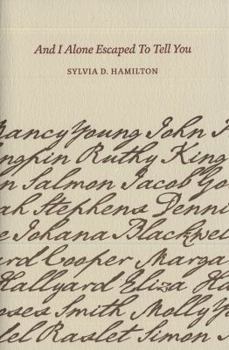 And I Alone Escaped To Tell You
SYLVIA D. HAMILTON
Nancy Young John
Ruthy King
Salmon Jacob
Stephens
Johana Blackwell
Cooper
Hallyard Eliza
Smith Molly
Raslet Simon